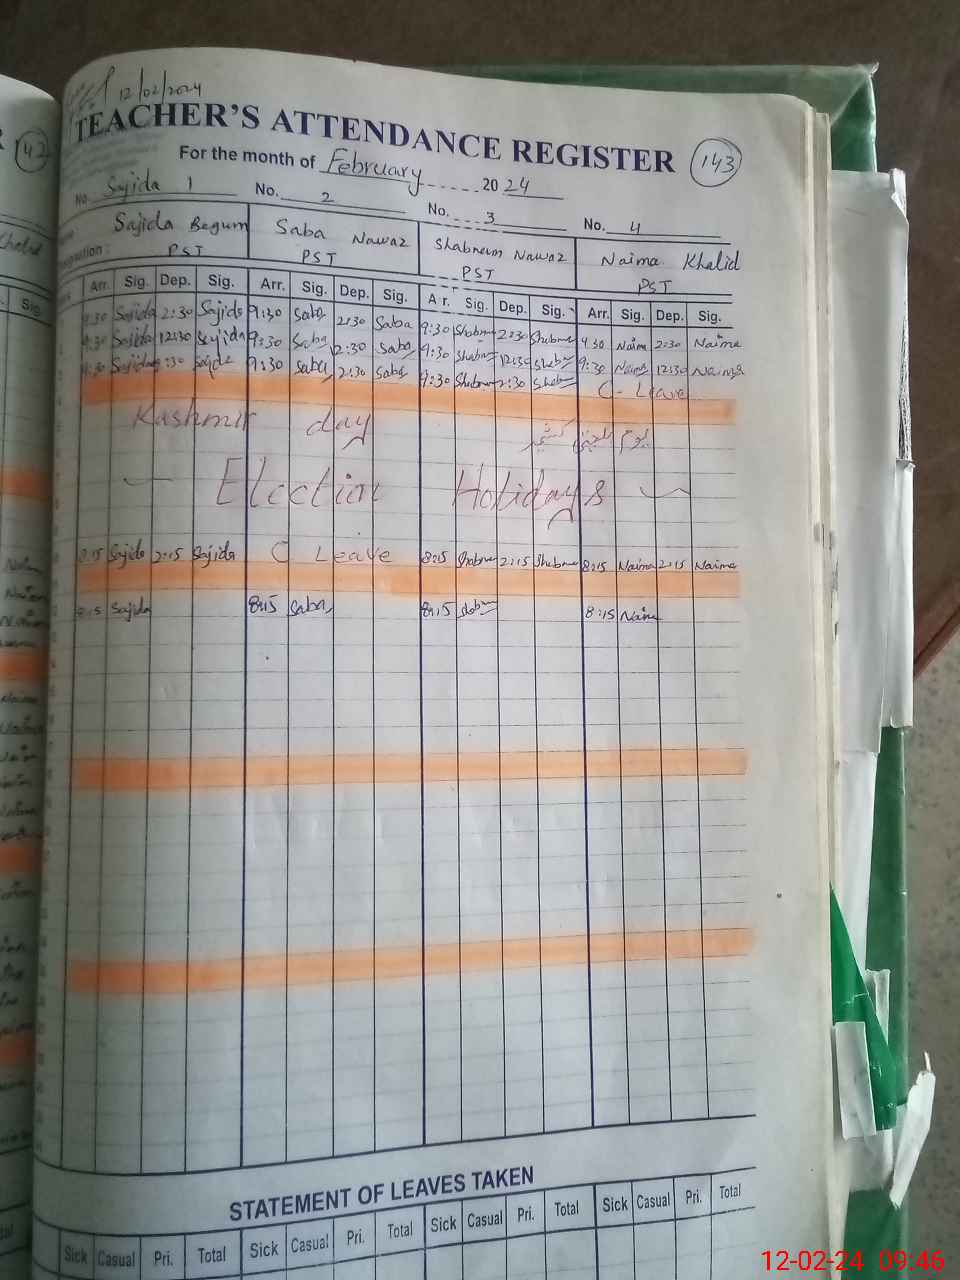 12/02/2024
TEACHER'S ATTENDANCE REGISTER 143
For the month of February 2024
No. Sajida 1 No. 2 No. 3 No. 4
Sajida Begum Saba Nawaz Shabnam Nawaz Naima Khalid
PST PST PST PST
Arr. Sig. Dep. Sig. Arr. Sig. Dep. Sig. Ar. Sig. Dep. Sig. Arr. Sig. Dep. Sig.
9:30 Sajida 2:30 Sajida 9:30 Saba 2:30 Saba 9:30 Shabnam 2:30 Shabnam 9:30 Naima 2:30 Naima
9:30 Sajida 12:30 Sajida 9:30 Saba 12:30 Saba 9:30 Shabnam 12:30 Shabnam 9:30 Naima 12:30 Naima
9:30 Sajida 2:30 Sajida 9:30 Saba 2:30 Saba 9:30 Shabnam 2:30 Shabnam C- Leave
Kashmir day یوم یکجہتی کشمیر
Election Holidays
8:15 Sajida 2:15 Sajida C Leave 8:15 Shabnam 2:15 Shabnam 8:15 Naima 2:15 Naima
8:15 Sajida 8:15 Saba 8:15 8:15 Naima
STATEMENT OF LEAVES TAKEN
Sick Casual Pri. Total Sick Casual Pri. Total Sick Casual Pri. Total Sick Casual Pri. Total
12-02-24 09:46